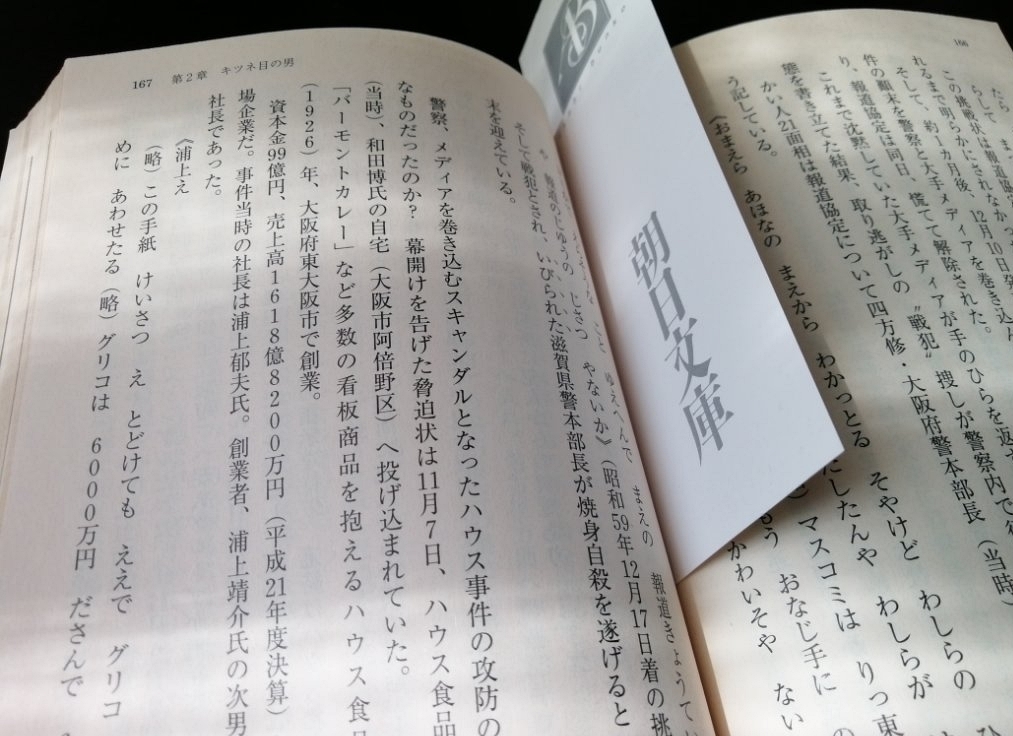 166
たら
らして
この挑戦状は報道協定
れるまで明らかにされなかっ
そして、約1カ月後、12月10日発
件の顛末を警察と大手メディアを巻き込ん
り、報道協定は同日、慌てて解除された。
これまで沈黙していた大手メディアが手のひらを返
態を書き立てた結果、取り逃がしの〝戦犯〟捜しが警察内で行
かい人21面相は報道協定について四方修・大阪府警本部長（当時）
う記している。
《おまえら あほなの まえから わかっとる そやけど わしらの
だしたんや わしらが
マスコミは りっ東
もう おなじ手に
かわいそや ない
朝日文庫
こと ゆえへんで まえの 報道きょうて
報道のじゆうの じさつ やないか》（昭和59年12月17日着の挑
そして戦犯とされ、いびられた滋賀県警本部長が焼身自殺を遂げると
末を迎えている。
警察、メディアを巻き込むスキャンダルとなったハウス事件の攻防の
なものだったのか？ 幕開けを告げた脅迫状は11月7日、ハウス食品
（当時）、和田博氏の自宅（大阪市阿倍野区）へ投げ込まれていた。
「バーモントカレー」など多数の看板商品を抱えるハウス食品
（1926）年、大阪府東大阪市で創業。
資本金99億円、売上高1618億8200万円（平成21年度決算）
場企業だ。事件当時の社長は浦上郁夫氏。創業者、浦上靖介氏の次男
社長であった。
《浦上え
（略）この手紙 けいさつ え とどけても ええで グリコ
めに あわせたる（略）グリコは 6000万円 ださんで
167 第2章 キツネ目の男